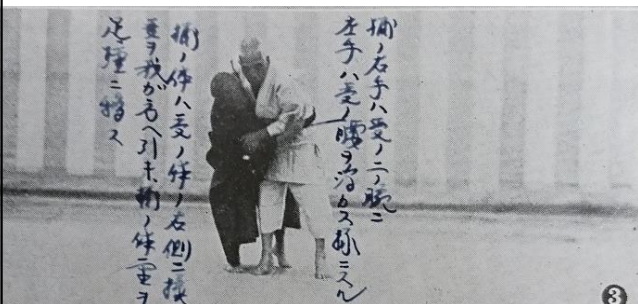 捕ノ右手ハ受ノ二ノ腕ニ
左手ハ受ノ腰ヲ浮カス様ニスル
捕ノ体ハ受ノ体ノ右側ニ接
受ヲ我が方ヘ引キ、捕ノ体重ヲ
足踵ニ移ス
3